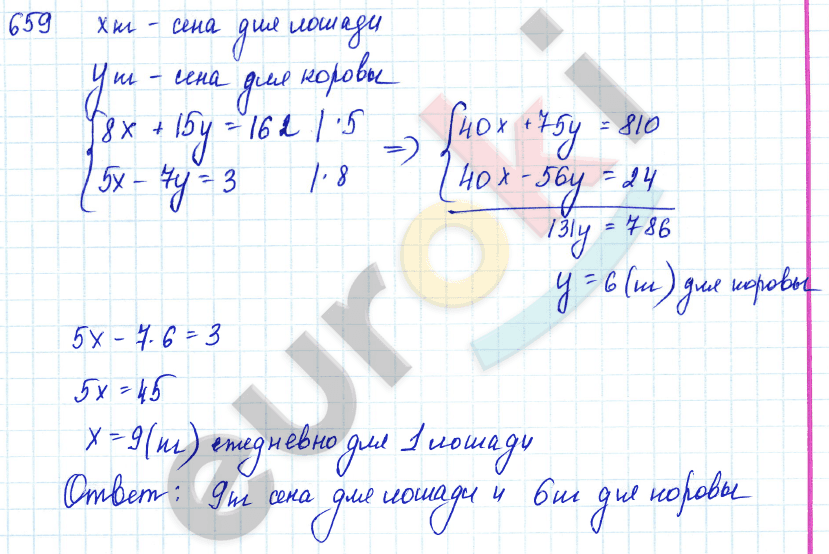 659 x т - сена для лошади
y т - сена для коровы
{8x + 15y = 162 | ·5
5x - 7y = 3 | ·8
=> {40x + 75y = 810
40x - 56y = 24
131y = 786
y = 6 (т) для коровы
5x - 7·6 = 3
5x = 45
x = 9 (т) ежедневно для 1 лошади
Ответ: 9т сена для лошади и 6т для коровы
euroki